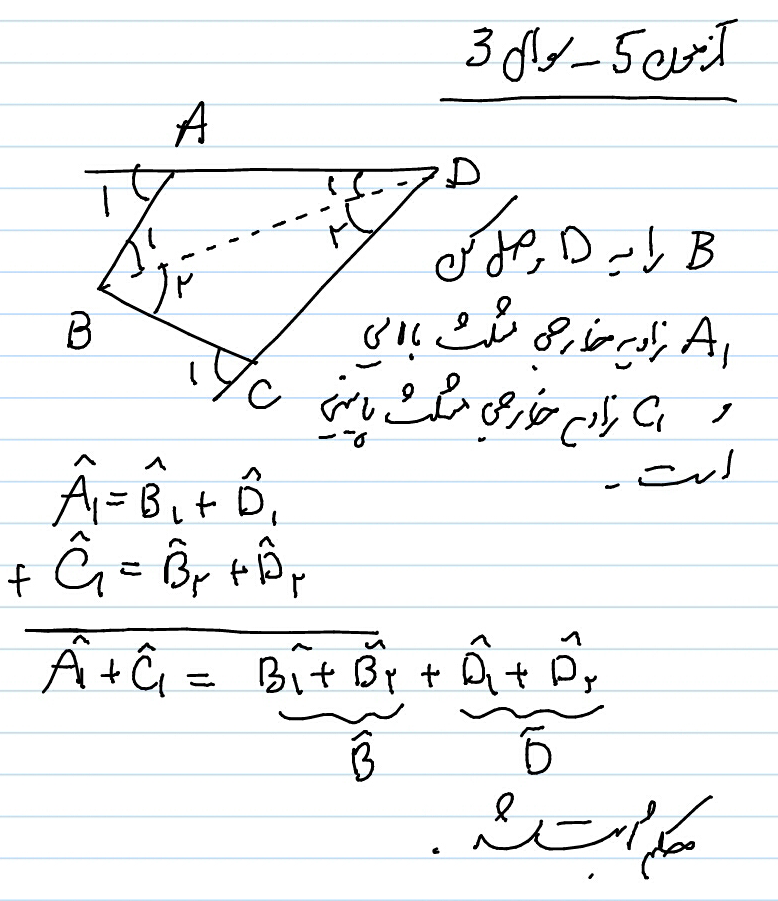 آزمون 5 – سوال 3
A
D
B
C
۱
۱
۲
۱
۲
۱
B را به D وصل کن
A₁ زاویه خارجی مثلث بالایی
و C₁ زاویه خارجی مثلث پایینی
است.
Â₁ = B̂₁ + D̂₁
+ Ĉ₁ = B̂₂ + D̂₂
Â₁ + Ĉ₁ = B̂₁ + B̂₂ + D̂₁ + D̂₂
B̂ D̂
حکم ثابت شد.